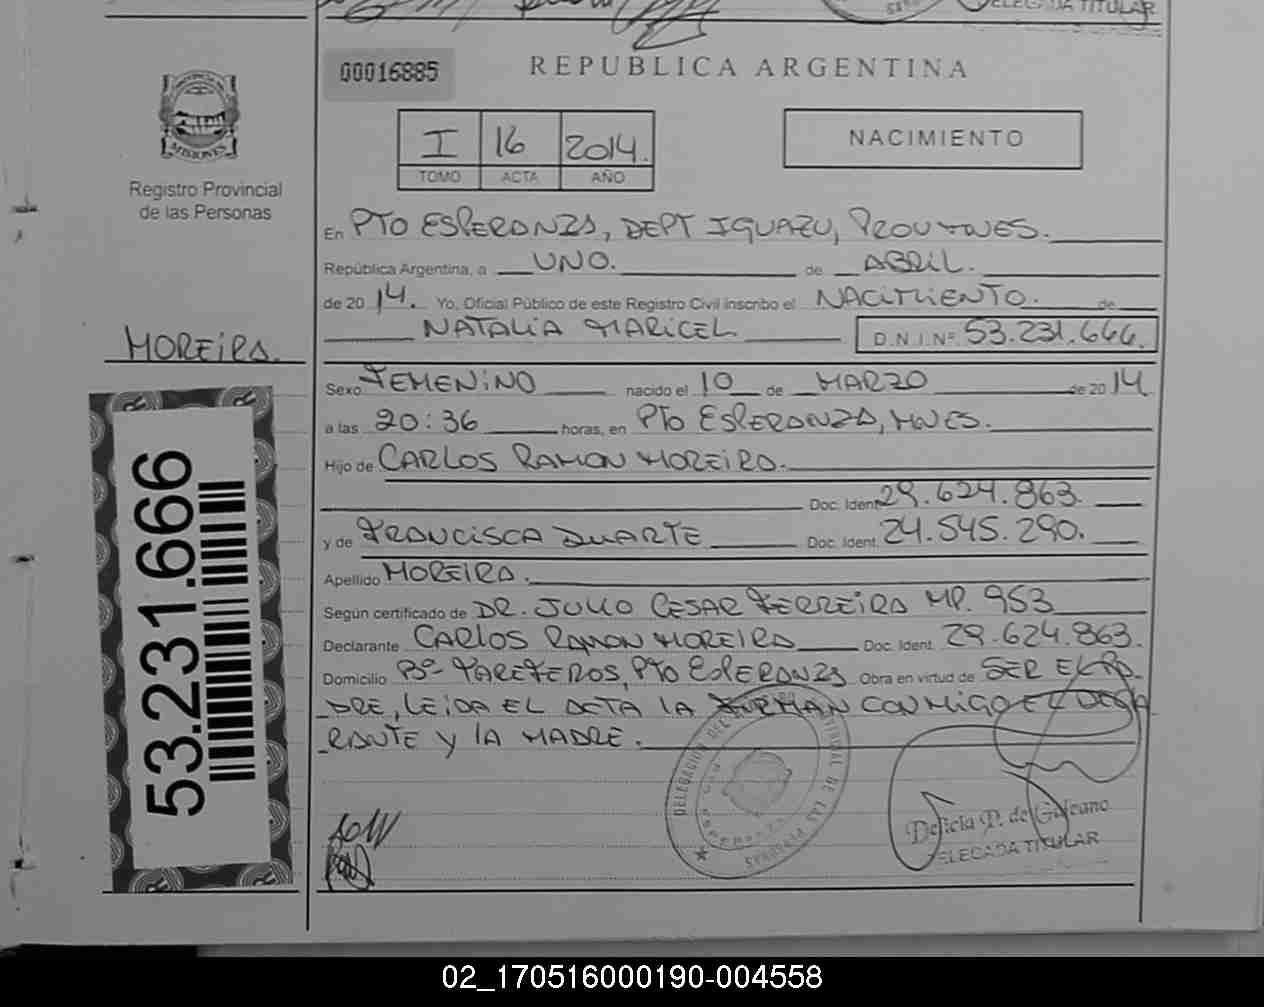 DELEGADA TITULAR
00016885
REPUBLICA ARGENTINA
I 16 2014.
TOMO ACTA AÑO
NACIMIENTO
MISIONES
Registro Provincial
de las Personas
En PTO ESPERANZA, DEPT IGUAZU, PROV MNES.
República Argentina, a UNO. de ABRIL.
de 20 14. Yo, Oficial Público de este Registro Civil inscribo el NACIMIENTO. de
NATALIA MARICEL D.N.I.Nº 53.231.666.
MOREIRA.
Sexo FEMENINO nacido el 10 de MARZO de 20 14
a las 20:36 horas, en PTO ESPERANZA, MNES.
Hijo de CARLOS RAMON MOREIRA.
Doc. Ident. 29.624.863.
y de FRANCISCA DUARTE Doc. Ident. 24.545.290.
Apellido MOREIRA.
Según certificado de DR. JULIO CESAR FERREIRA MP. 953
Declarante CARLOS RAMON MOREIRA Doc. Ident. 29.624.863.
Domicilio Bº TAREFEROS, PTO ESPERANZA Obra en virtud de SER EL PA
DRE, LEIDA EL ACTA LA FIRMAN CONMIGO EL DECLA
RANTE Y LA MADRE.
53.231.666
DELEGACION DEL REGISTRO PROVINCIAL DE LAS PERSONAS
ESPERANZA
Delicia P. de Galeano
DELEGADA TITULAR
02_170516000190-004558